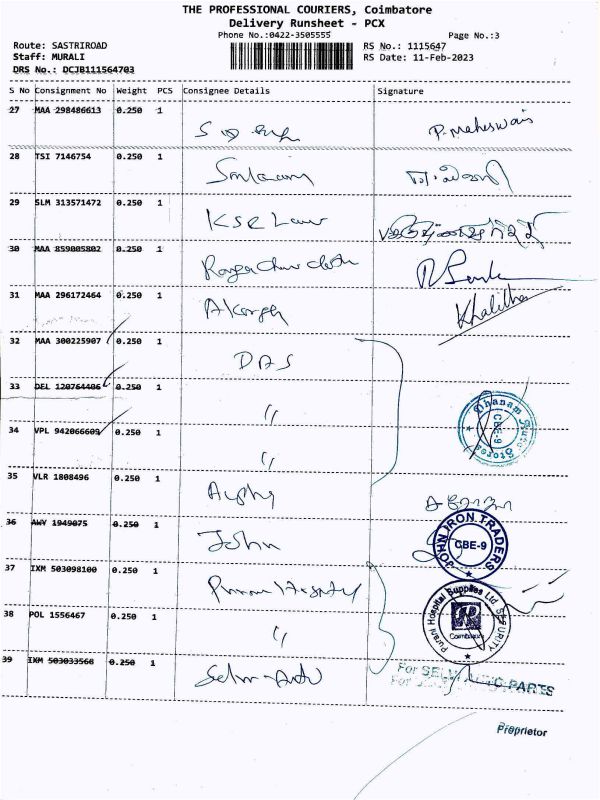 THE PROFESSIONAL COURIERS, Coimbatore
Delivery Runsheet - PCX
Phone No.:0422-3505555 Page No.:3
Route: SASTRIROAD RS No.: 1115647
Staff: MURALI RS Date: 11-Feb-2023
DRS No.: DCJB111564703
S No Consignment No Weight PCS Consignee Details Signature
27 MAA 298486613 0.250 1 P. Maheswari
28 TSI 7146754 0.250 1
29 SLM 313571472 0.250 1 KSR Law
30 MAA 859005802 0.250 1
31 MAA 296172464 0.250 1 Khalitha
32 MAA 300225907 0.250 1 DAS
33 DEL 120764406 0.250 1 "
Dhanam Auto Stores
CBE-9
34 VPL 942066609 0.250 1 "
35 VLR 1808496 0.250 1
36 AWY 1949075 0.250 1 John
JOHN IRON TRADERS
CBE-9
37 IXM 503098100 0.250 1
38 POL 1556467 0.250 1 "
Purani Hospital Supplies Ltd SECURITY
Coimbatore
39 IXM 503033568 0.250 1
For SELVI AUTO PARTS
Proprietor